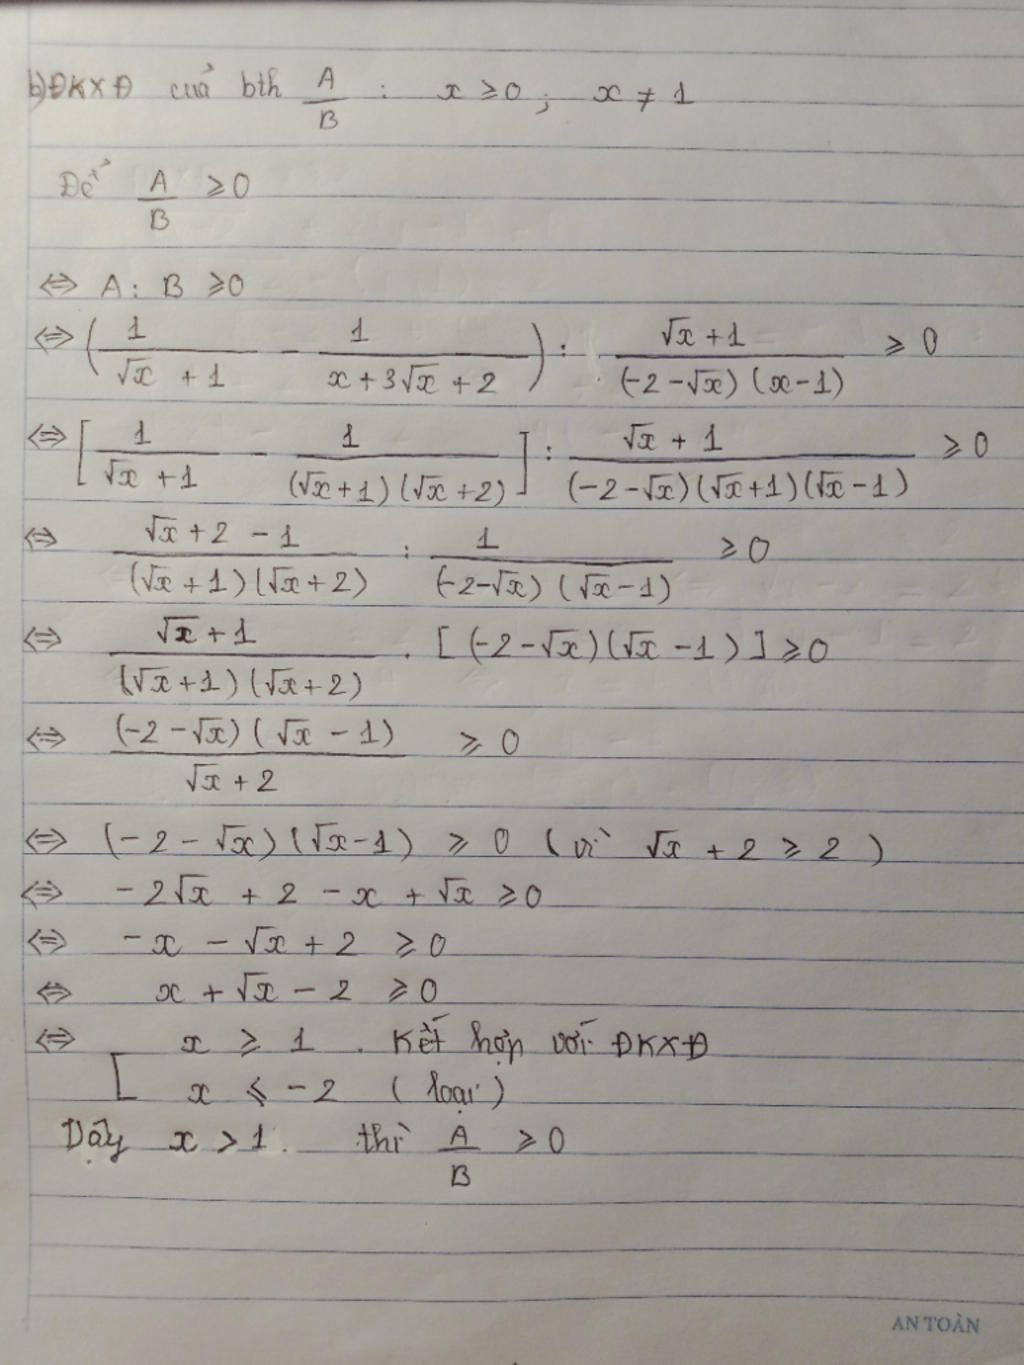 b) ĐKXĐ của bth A/B : x ⩾ 0 ; x ≠ 1
Để A/B ⩾ 0
⇔ A : B ⩾ 0
⇔ ( 1/(√x + 1) - 1/(x + 3√x + 2) ) : (√x + 1)/((-2 - √x)(x - 1)) ⩾ 0
⇔ [ 1/(√x + 1) - 1/((√x + 1)(√x + 2)) ] : (√x + 1)/((-2 - √x)(√x + 1)(√x - 1)) ⩾ 0
⇔ (√x + 2 - 1)/((√x + 1)(√x + 2)) : 1/((-2 - √x)(√x - 1)) ⩾ 0
⇔ (√x + 1)/((√x + 1)(√x + 2)) . [(-2 - √x)(√x - 1)] ⩾ 0
⇔ ((-2 - √x)(√x - 1))/(√x + 2) ⩾ 0
⇔ (-2 - √x)(√x - 1) ⩾ 0 (vì √x + 2 ⩾ 2)
⇔ -2√x + 2 - x + √x ⩾ 0
⇔ -x - √x + 2 ⩾ 0
⇔ x + √x - 2 ⩾ 0
⇔ [ x ⩾ 1 . Kết hợp với ĐKXĐ
x ⩽ -2 (loại)
Vậy x > 1 . thì A/B ⩾ 0
AN TOÀN